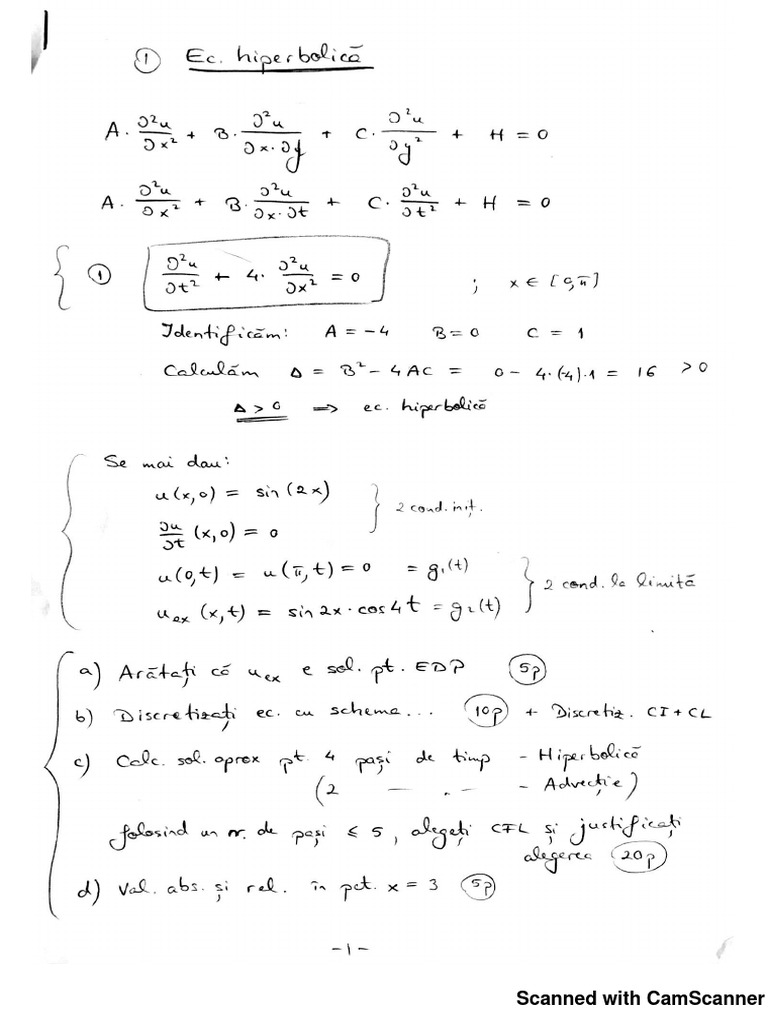 ① Ec. hiperbolică
A · ∂²u/∂x² + B · ∂²u/∂x·∂y + C · ∂²u/∂y² + H = 0
A · ∂²u/∂x² + B · ∂²u/∂x·∂t + C · ∂²u/∂t² + H = 0
① ∂²u/∂t² + 4 · ∂²u/∂x² = 0 ; x ∈ [0,π]
Identificăm: A = -4 B = 0 C = 1
Calculăm Δ = B² - 4AC = 0 - 4·(-4)·1 = 16 > 0
Δ > 0 ⟹ ec. hiperbolică
Se mai dau:
u(x,0) = sin(2x)
∂u/∂t (x,0) = 0
} 2 cond. iniț.
u(0,t) = u(π,t) = 0 = g₁(t)
uₑₓ(x,t) = sin 2x · cos 4t = g₂(t)
} 2 cond. la limită
a) Arătați că uₑₓ e sol. pt. EDP 5p
b) Discretizați ec. cu schema... 10p + Discretiz. CI + CL
c) Calc. sol. aprox pt. 4 pași de timp - Hiperbolică
(2 — . — - Advecție)
folosind un nr. de pași ≤ 5, alegeți CFL și justificați
alegerea 20p
d) Val. abs. și rel. în pct. x = 3 5p
-1-
Scanned with CamScanner